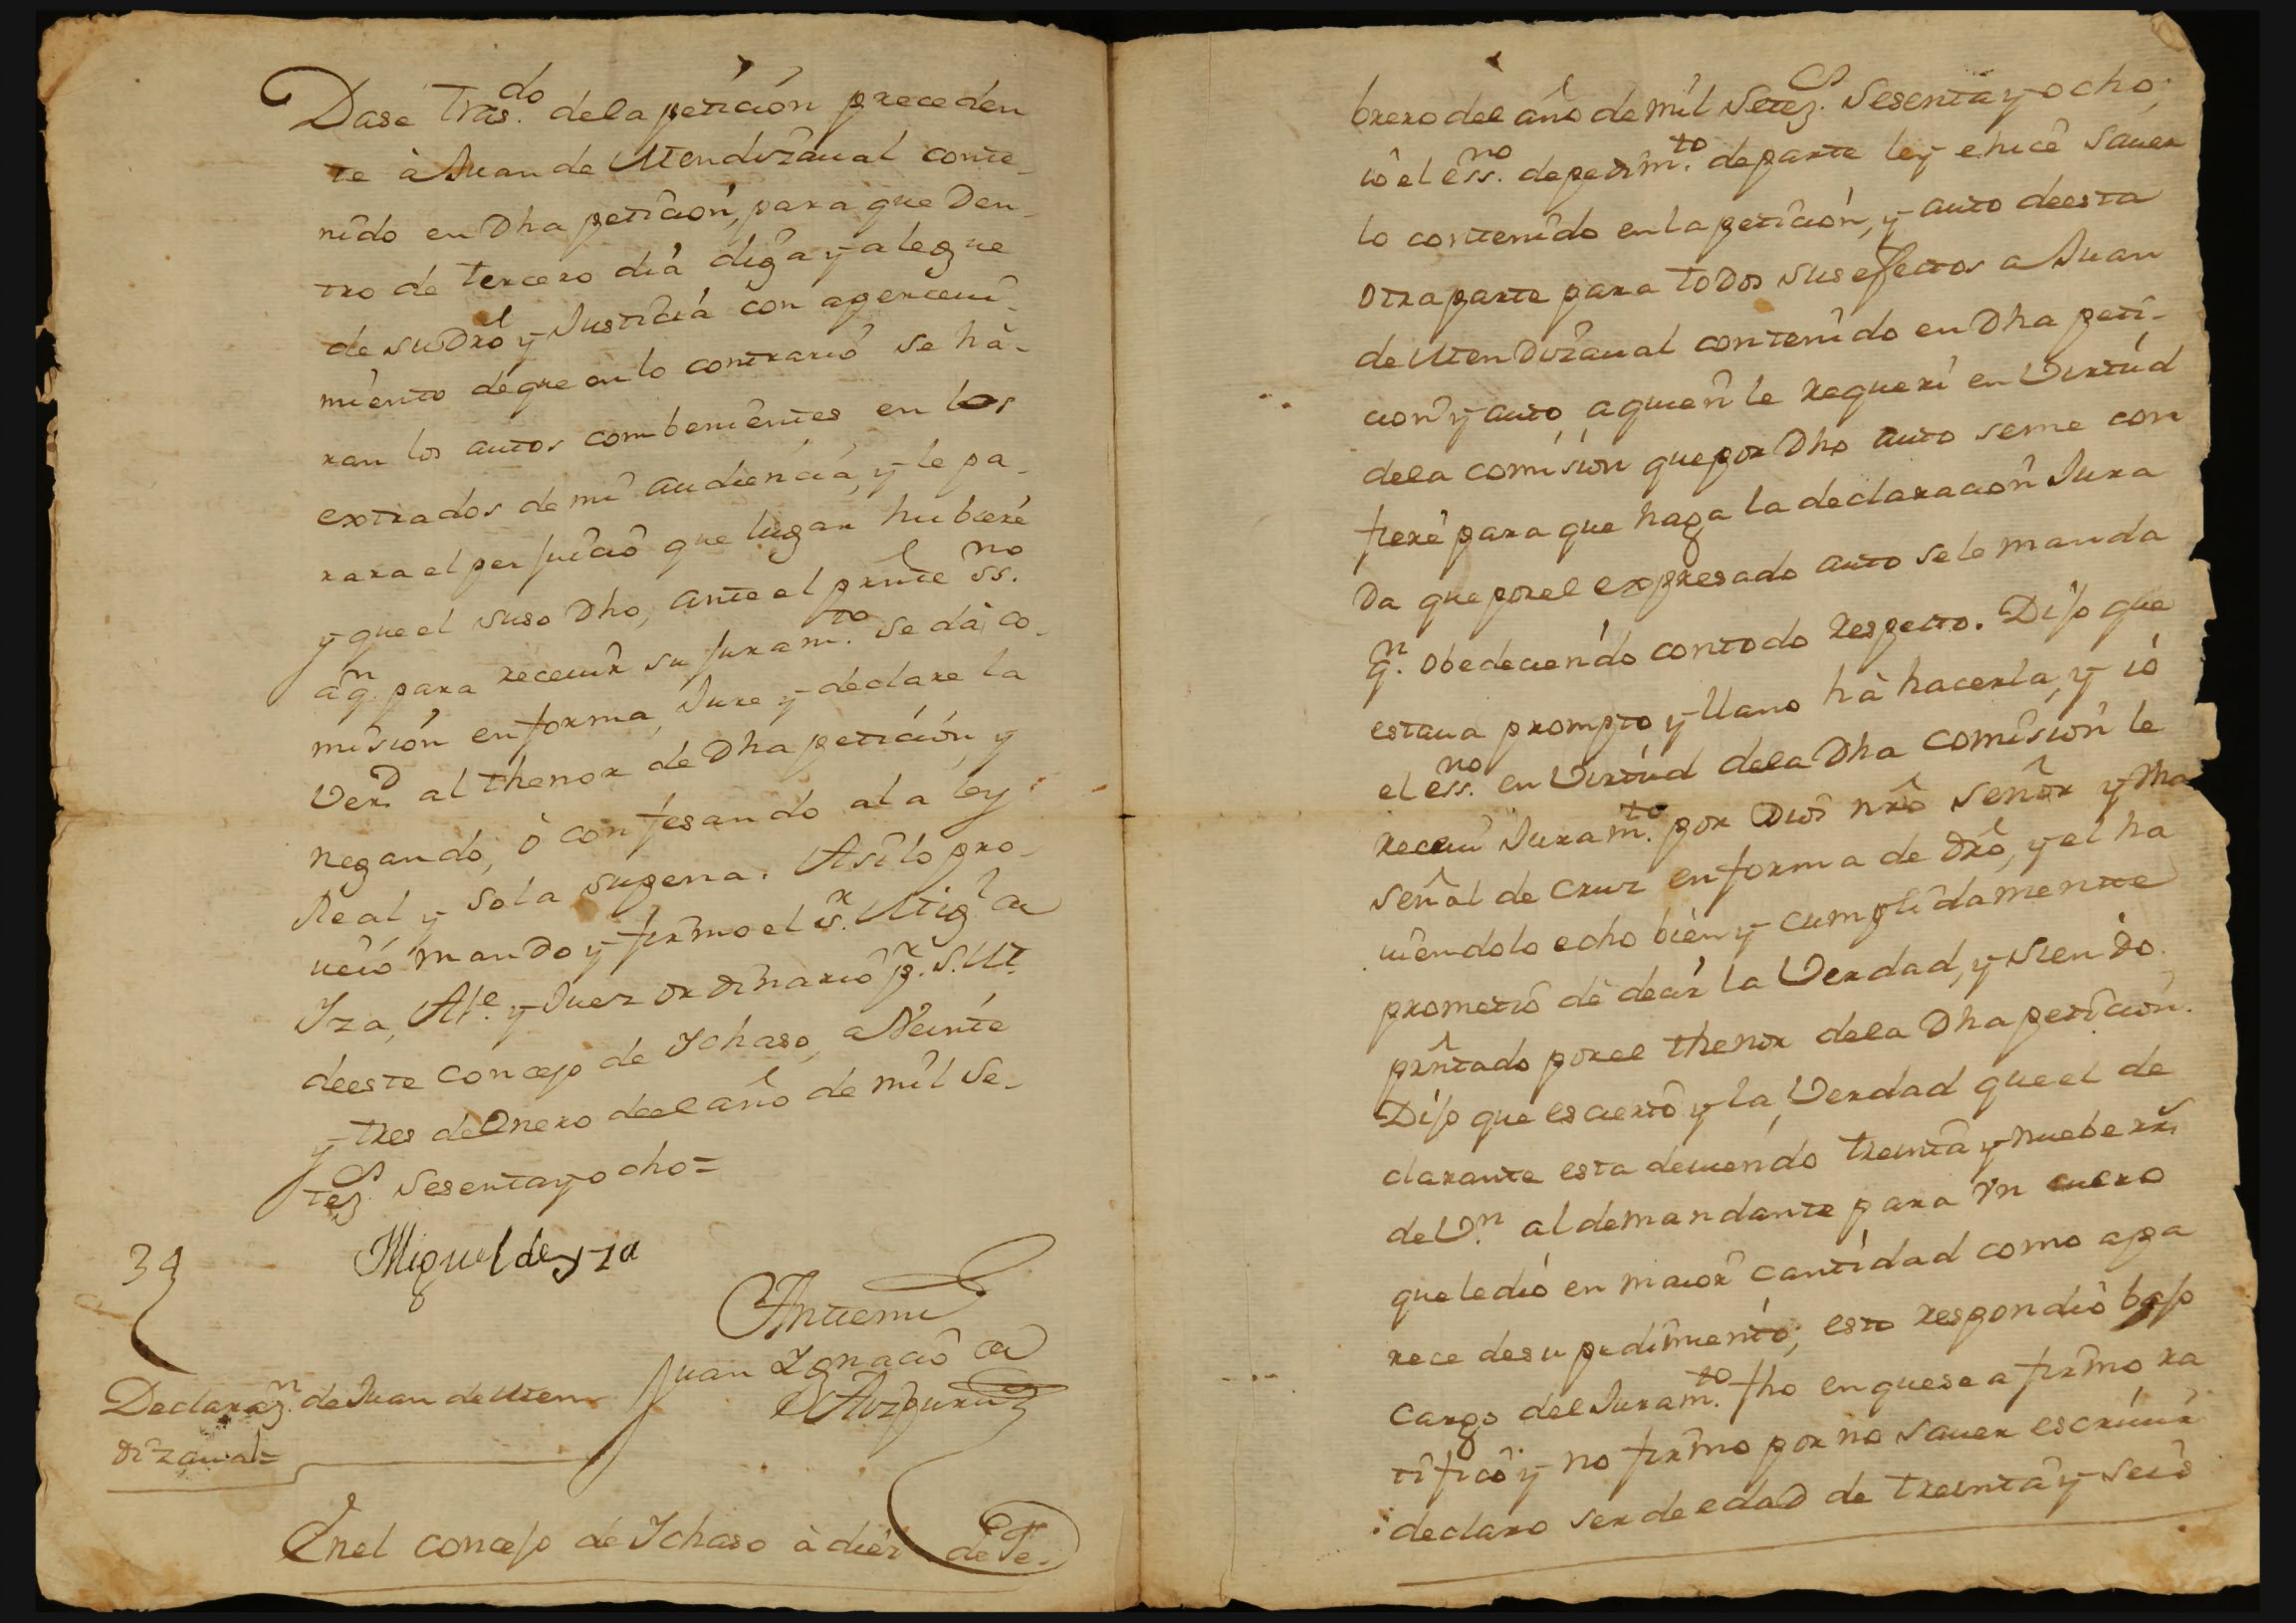 Dase Tras.do dela petición preceden
te à Juan de Mendizaual conte-
nido en Dha petición, para que Den-
tro de tercero día diga y alegue
de su Dro y Justicia con aperceui-
miento de que en lo contrario se hà-
ran los autos combenientes en los
extrados de mi audiencia, y le pa-
rara el perjuicio que lugar hubiere
y que el suso Dho, ante el prnte ss.no
a q.n para receuir su juram.to se dà co-
misión en forma, Jure y declare la
Verd. al thenor de Dha petición, y
negando, ò confesando ala ley
Real y sola supena. Asilo pro-
ueió mando y firmo el s.r Mig.l de
Yza, Al.e y Juez ordinario p.r S.M.
deeste concejo de Ychaso, a Veinte
y tres de Enero deel año de mil se-
tez.s sesenta y ocho=
Miguel de yza
Antemi
Juan Ignacio de
Aizpuru
34
Declaraz.n de Juan de Men
dizaual=
Enel concejo de Ychaso à diez de Fe-
brero del año de mil Setez.s Sesenta y ocho;
io el ess.no de pedim.to de parte ley e hice sauer
lo contenido en la petición, y auto deesta
otra parte para todos sus efectos a Juan
de Mendizaual contenido en Dha peti-
cion y auto, a quien le requeri en Virtud
dela comisión que por Dho auto seme con
fiere para que haga la declaración Jura
da que por el expresado auto sele manda
q.n obedeciendo con todo respecto. Dijo que
estaua prompto y llano hà hacerla, y io
el ess.no en Virtud dela Dha comisión le
receui Juram.to por Dios nrõ señor y una
señal de cruz en forma de drõ, y el ha
uiendolo echo bien y cumplidamente
prometió de decir la Verdad, y siendo
prntado por el thenor dela Dha petición.
Dijo que es cierto y la Verdad que el de
clarante esta deuiendo treinta y nuebe rr.s
de V.n al demandante para Vn cuero
que le dió en maior cantidad como apa
rece desu pedimiento; esto respondió bajo
cargo del Juram.to fho en que se afirmo ra
tificó y no firmo por no sauer escriuir
declaro ser de edad de treinta y seis